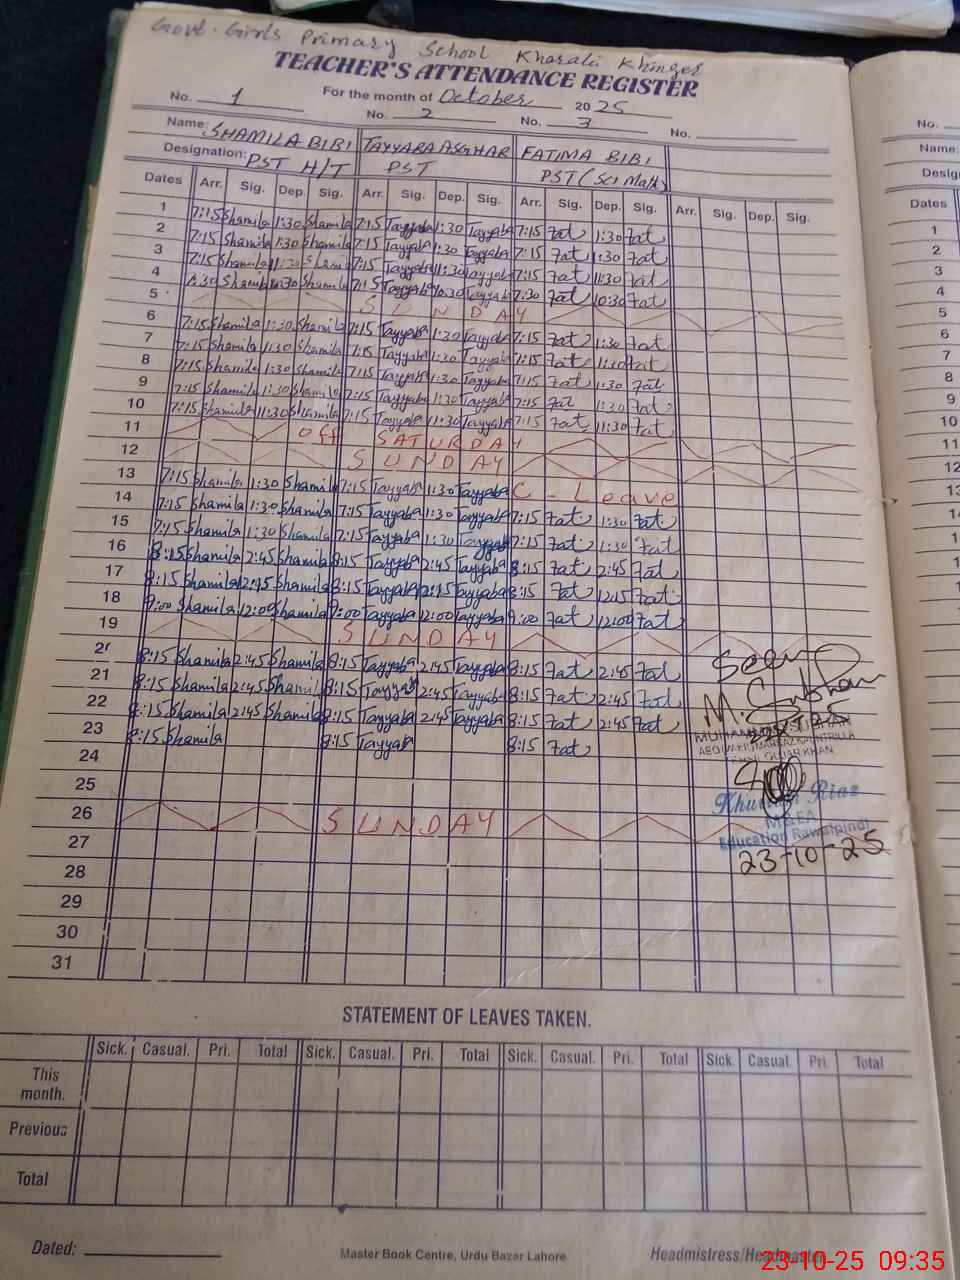 Govt. Girls Primary School Kharali Khinger
TEACHER'S ATTENDANCE REGISTER
For the month of October 2025
No. 1 No. 2 No. 3 No.
Name: SHAMILA BIBI TAYYABA ASGHAR FATIMA BIBI
Designation: PST H/T PST PST (Sci Math)
Dates Arr. Sig. Dep. Sig. Arr. Sig. Dep. Sig. Arr. Sig. Dep. Sig. Arr. Sig. Dep. Sig.
1 7:15 Shamila 1:30 Shamila 7:15 Tayyaba 1:30 Tayyaba 7:15 Fat 1:30 Fat
2 7:15 Shamila 1:30 Shamila 7:15 Tayyaba 1:30 Tayyaba 7:15 Fat 1:30 Fat
3 7:15 Shamila 11:30 Shamila 7:15 Tayyaba 11:30 Tayyaba 7:15 Fat 11:30 Fat
4 Shamila 10:30 Shamila 7:15 Tayyaba 10:30 Tayyaba 7:30 Fat 10:30 Fat
5 SUNDAY
6 7:15 Shamila 1:30 Shamila 7:15 Tayyaba 1:30 Tayyaba 7:15 Fat 1:30 Fat
7 7:15 Shamila 1:30 Shamila 7:15 Tayyaba 1:30 Tayyaba 7:15 Fat 1:30 Fat
8 7:15 Shamila 1:30 Shamila 7:15 Tayyaba 1:30 Tayyaba 7:15 Fat 1:30 Fat
9 7:15 Shamila 1:30 Shamila 7:15 Tayyaba 1:30 Tayyaba 7:15 Fat 1:30 Fat
10 7:15 Shamila 11:30 Shamila 7:15 Tayyaba 11:30 Tayyaba 7:15 Fat 11:30 Fat
11 Off SATURDAY
12 SUNDAY
13 7:15 Shamila 1:30 Shamila 7:15 Tayyaba 1:30 Tayyaba C - Leave
14 7:15 Shamila 1:30 Shamila 7:15 Tayyaba 1:30 Tayyaba 7:15 Fat 1:30 Fat
15 7:15 Shamila 1:30 Shamila 7:15 Tayyaba 1:30 Tayyaba 7:15 Fat 1:30 Fat
16 8:15 Shamila 2:45 Shamila 8:15 Tayyaba 2:45 Tayyaba 8:15 Fat 2:45 Fat
17 8:15 Shamila 12:15 Shamila 8:15 Tayyaba 12:15 Tayyaba 8:15 Fat 12:15 Fat
18 9:00 Shamila 12:00 Shamila 9:00 Tayyaba 12:00 Tayyaba 9:00 Fat 12:00 Fat
19 SUNDAY
20 8:15 Shamila 2:45 Shamila 8:15 Tayyaba 2:45 Tayyaba 8:15 Fat 2:45 Fat
21 8:15 Shamila 2:45 Shamila 8:15 Tayyaba 2:45 Tayyaba 8:15 Fat 2:45 Fat
22 8:15 Shamila 2:45 Shamila 8:15 Tayyaba 2:45 Tayyaba 8:15 Fat 2:45 Fat
23 8:15 Shamila 8:15 Tayyaba 8:15 Fat
24
25
26 SUNDAY
27
28
29
30
31
Seen
KHAN
Riaz
M&EA
Education Rawalpindi
23-10-25
STATEMENT OF LEAVES TAKEN.
Sick. Casual. Pri. Total Sick. Casual. Pri. Total Sick. Casual. Pri. Total Sick. Casual. Pri. Total
This month.
Previous
Total
Dated:
Master Book Centre, Urdu Bazar Lahore.
Headmistress/Headmaster
23-10-25 09:35
No.
Name:
Dates
1
2
3
4
5
6
7
8
9
10
11
12